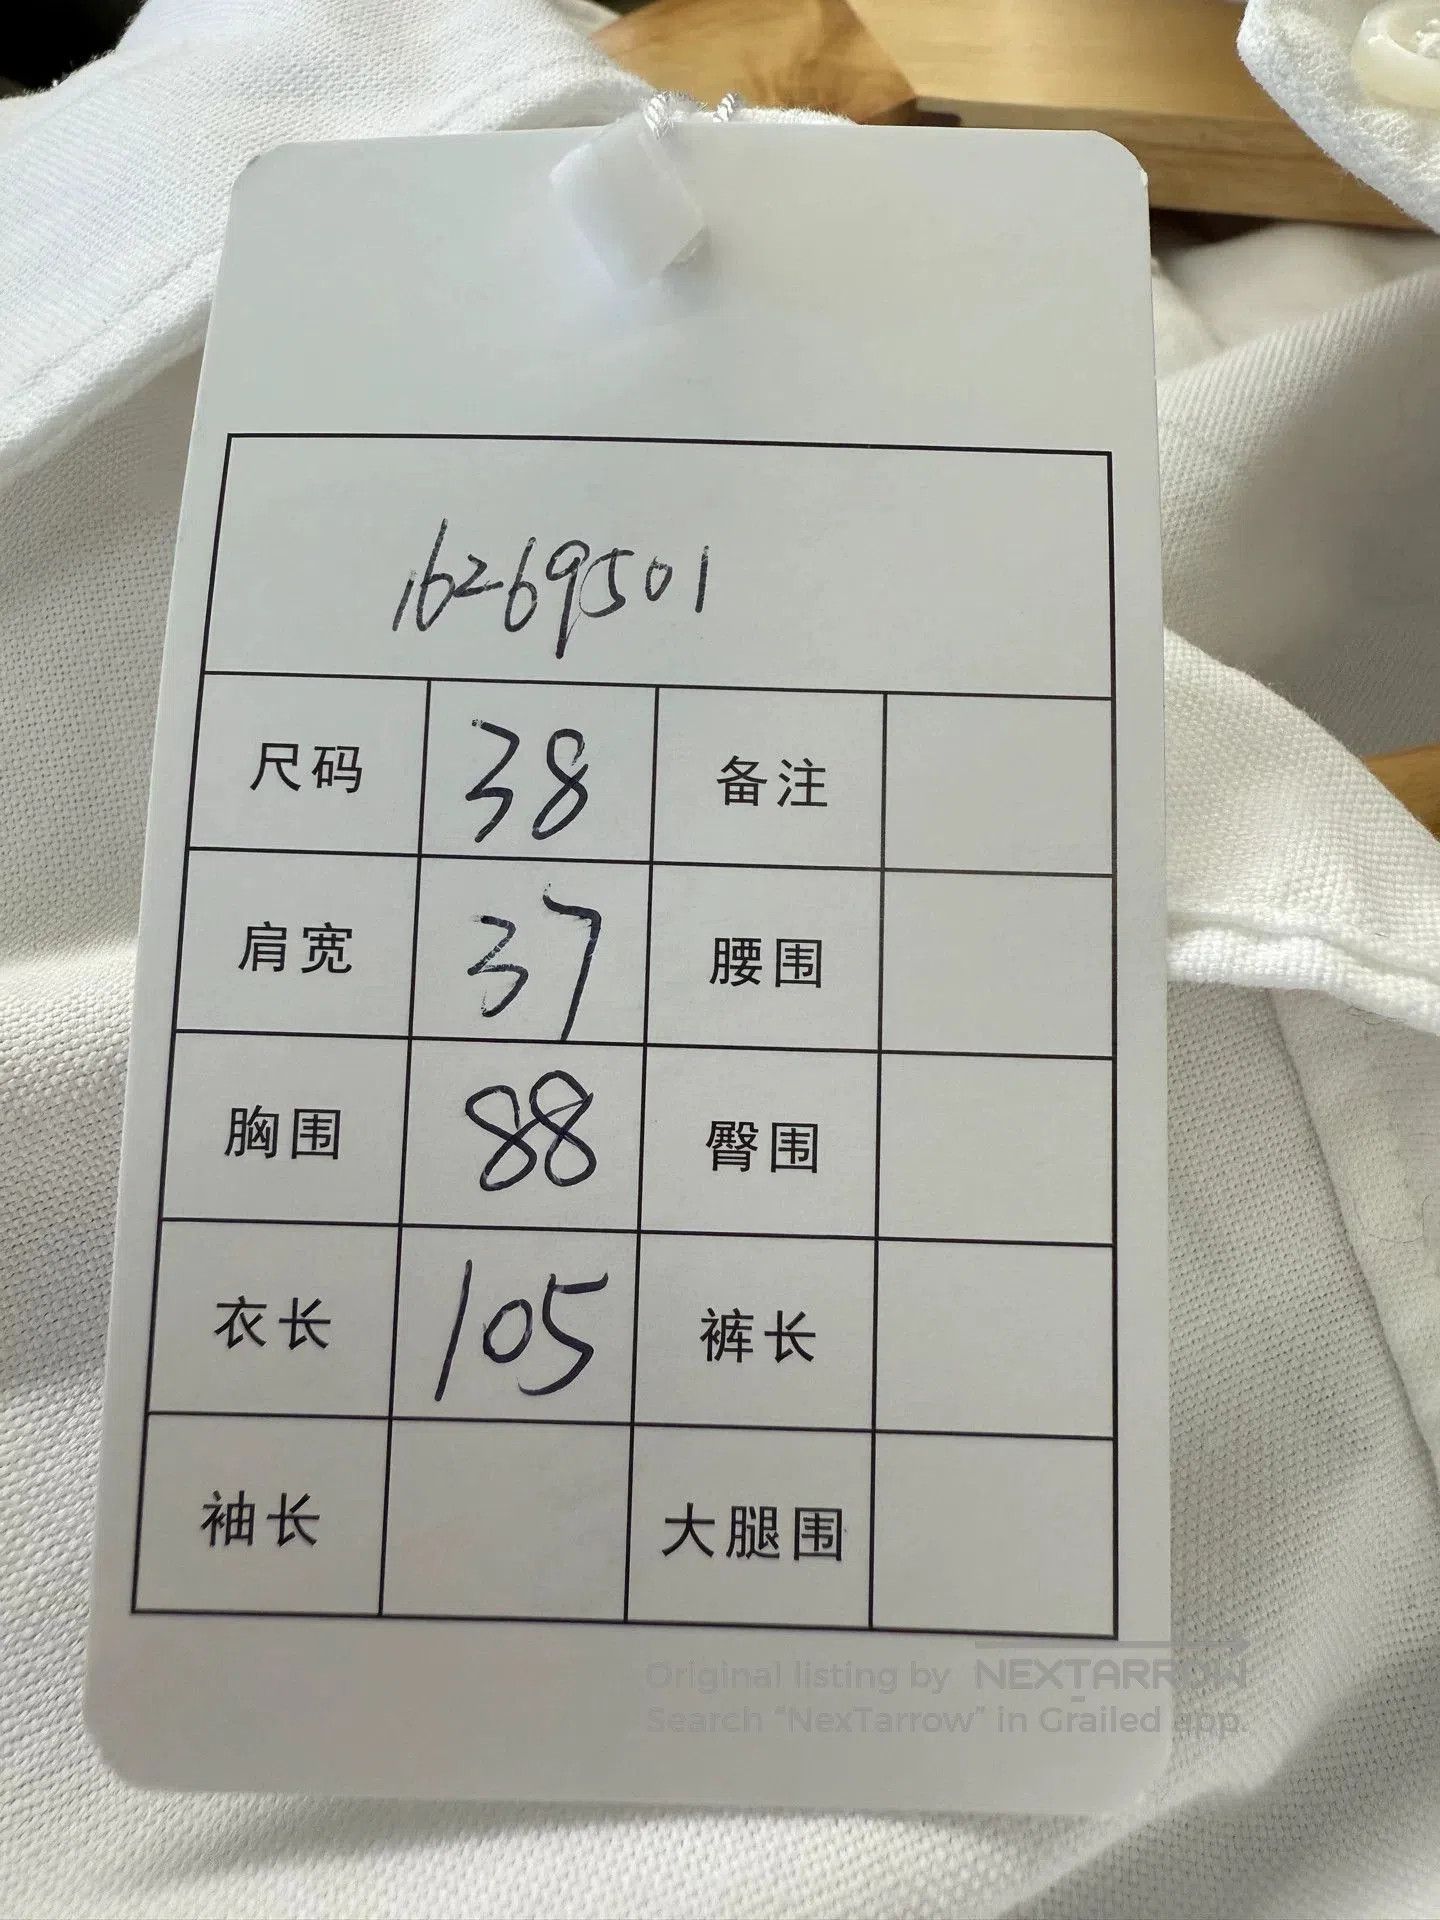 16269501
尺码 38 备注
肩宽 37 腰围
胸围 88 臀围
衣长 105 裤长
袖长 大腿围
Original listing by NEXTARROW
Search “NexTarrow” in Grailed app.